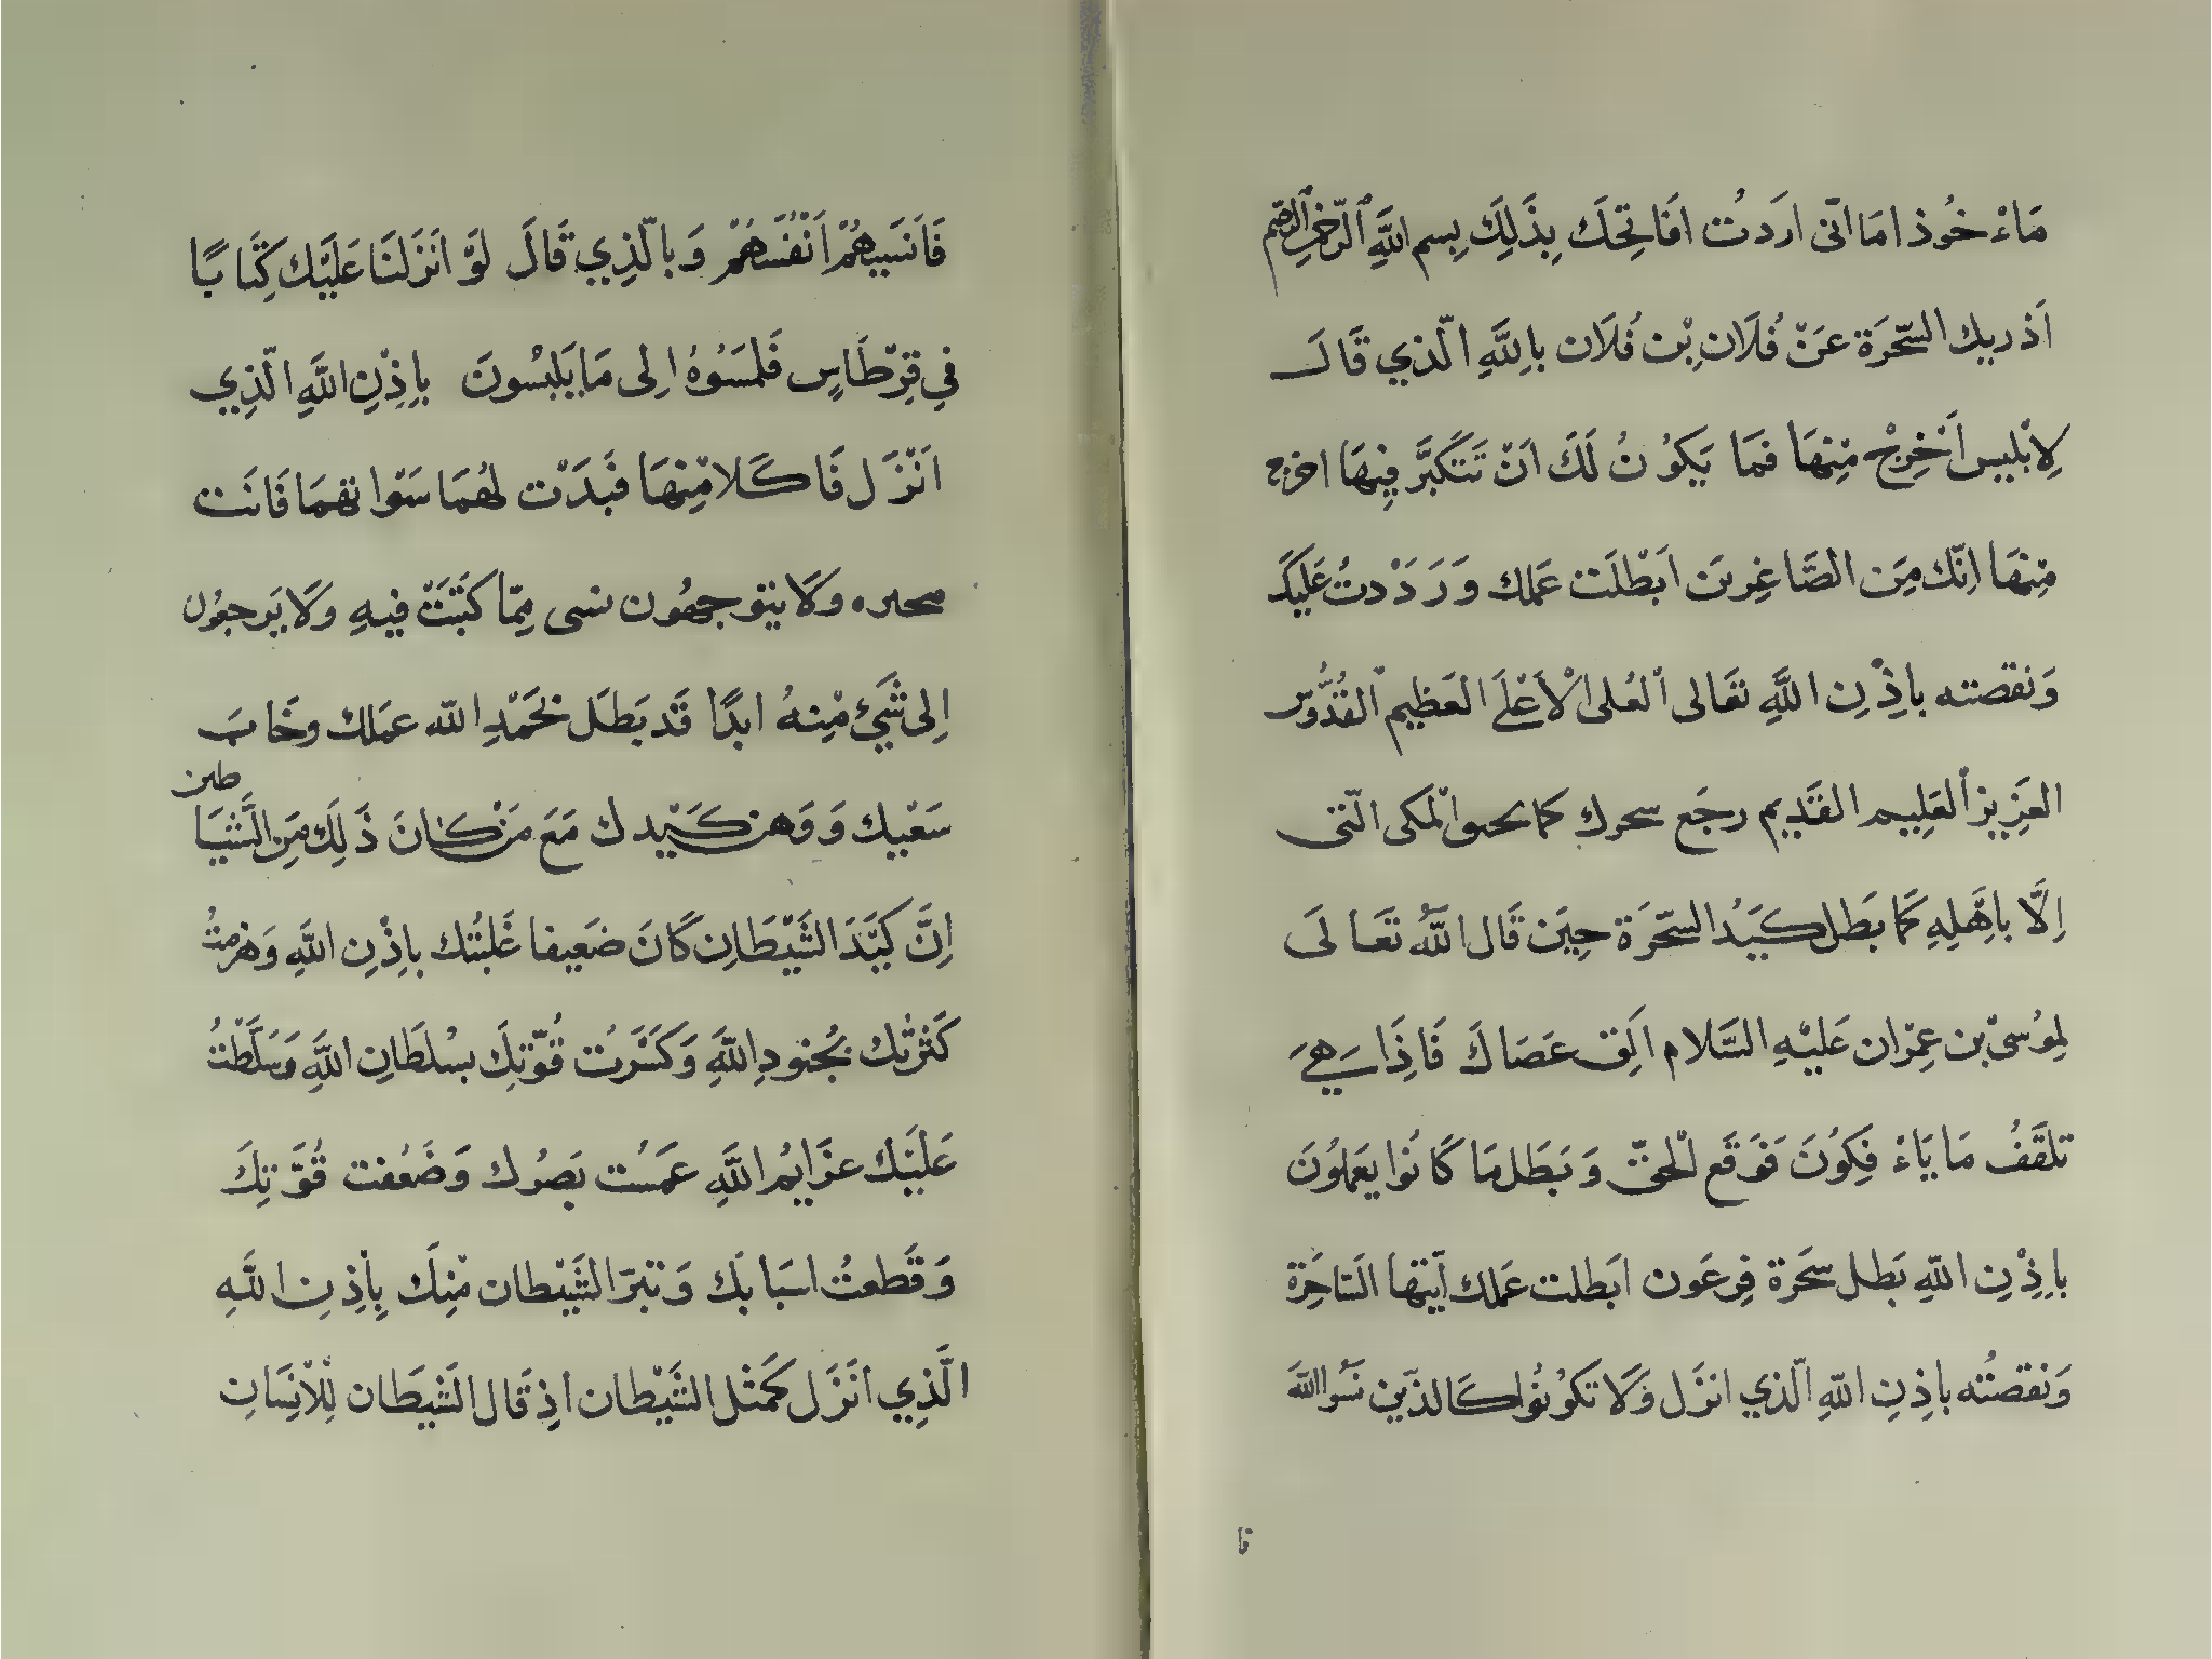 مَاءْ خُوذ امَا انّى ارَدتُ افَاتِحَك بِذَلِكَ بِسم اللَّهِ الرّحمنِ الرّحيم
اَذريك السّحَرَة عَنْ فُلَان بِنْ فُلَان بالِلَّهِ الّذي قَالَ
لِابْليس اَخْرِجْ مِنهَا فمَا يَكوُنُ لَكَ اَنْ تَتَكَبَّر فِيهَا اخرج
مِنهَا اِنّك مِنَ الصَّاغِرين ابَطْلَت عَمَلك وَرَدَدْتُ عَليَكَ
وَنقصته باِذْنِ اللَّهِ تعَالى العُلى الْاَعْلَى العَظيم القُدُّوس
العَزيز العَلِيم القَدِيم رجَع سحرك كما
اِلَّا باِهَلِهِ كمَا بَطَل كَيَدُ السّحَرَة حِيَن قَال اللَّهُ تعَالَى
لمِوُسىْ بن عِمْران عَليْهِ السَّلام اَلِق عَصَاكَ فَاِذَا هِيَ
تلقَفُ مَا يَاءْ فِكوُنَ فوَقَع الْحقّ وَبَطَل مَا كَانُوا يعَملوُنَ
باِذْنِ اللّهِ بَطل سحَرة فِرعَون ابَطلت عَمَلك ايّتها السّاحَرة
وَنقصتُه باِذِنِ اللّهِ الّذي انزَل وَلَا تكوُنوُا كَالذّين نسَوُا اللَّهَ
فا
فَاَنسَيهُمْ اَنْفُسَهُمْ وَبالّذِي قَالَ لوَّ انَزَلنَا عَليَّك كِتَابًا
فِي قِرْطَاسٍ فَلمَسَوُهُ اِلى مَا يَلبسُونَ باِذْنِ اللَّهِ الّذِي
اَنْزَل فَاكَلا مْنِهَا فبَدَتْ لهُمَا سَوَّاتهمَا فَانَت
وَلَا يتوجهُون مِمّا كتَبَتْ فيهِ وَلَا يَرجعوُن
اِلى شَيْءٍ مْنِهُ ابدًا قَد بَطَل بحَمْدِ اللّه عمَلك وخَابَ
سَعْيك وَوَهن كَيْدك مَعَ مَنْ كانَ ذَلِكَ مِنَ الشَّيَا
طين
اِنَّ كَيَّدَ الشَيْطَانِ كَانَ ضَعيفا غَلبتُك باِذْنِ اللَّهِ وَهزمتُ
كَثْرتك بجُنودِ اللَّهِ وَكسَرَتُ قُوّتِكَ بسْلطَانِ اللَّهِ وَسَلَّطْتُ
عَليَك عزَايمُ اللَّهِ عمَسُت بَصرُك وَضَعُفت قُوَّتِكَ
وَقَطعتُ اسبَابَك وَتبرّا الشَيْطان مْنِكَ بِاِذِنِ اللَّهِ
الَّذِي انَزَل كمَثل الشَيْطان اذِ قَال الشَيطَان لِلْاَنِسَانِ